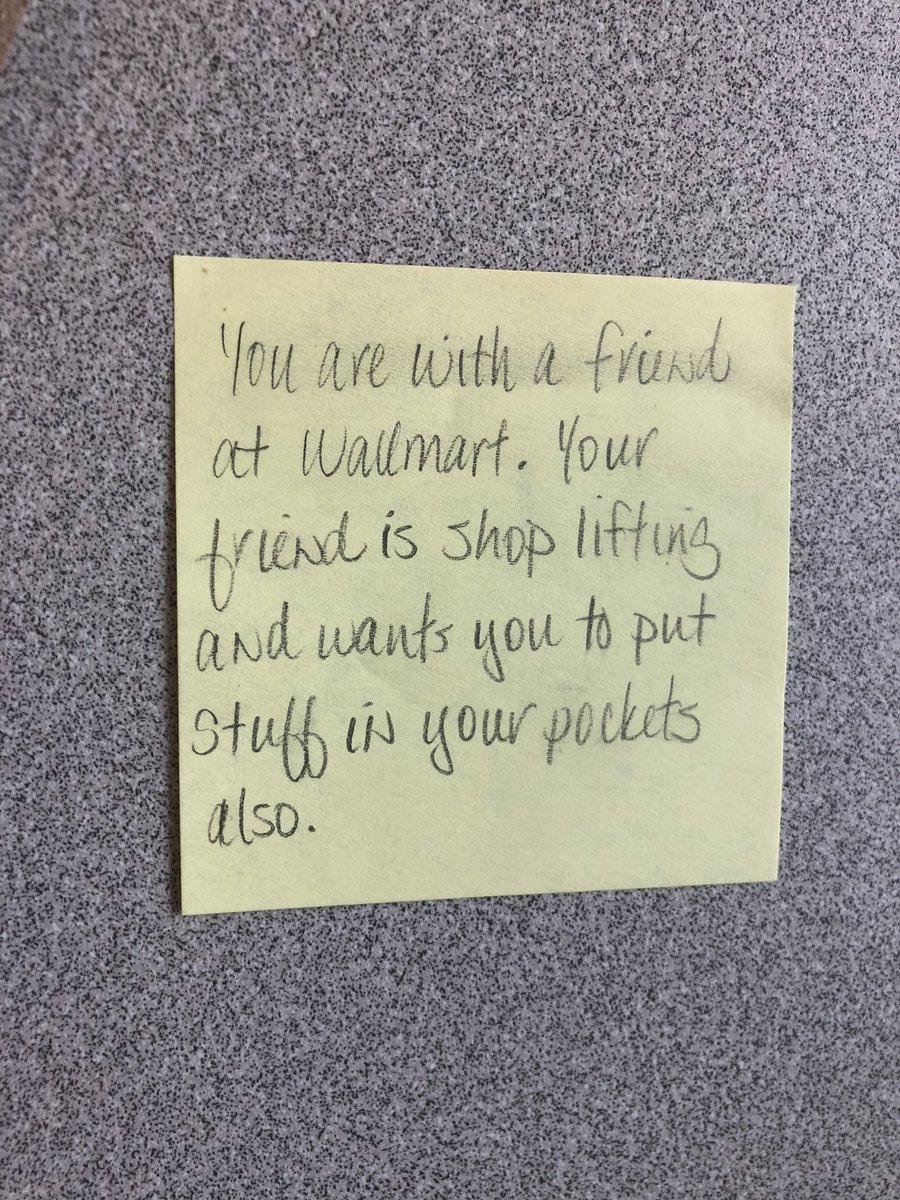 You are with a friend
at Wallmart. Your
friend is shop lifting
and wants you to put
stuff in your pockets
also.